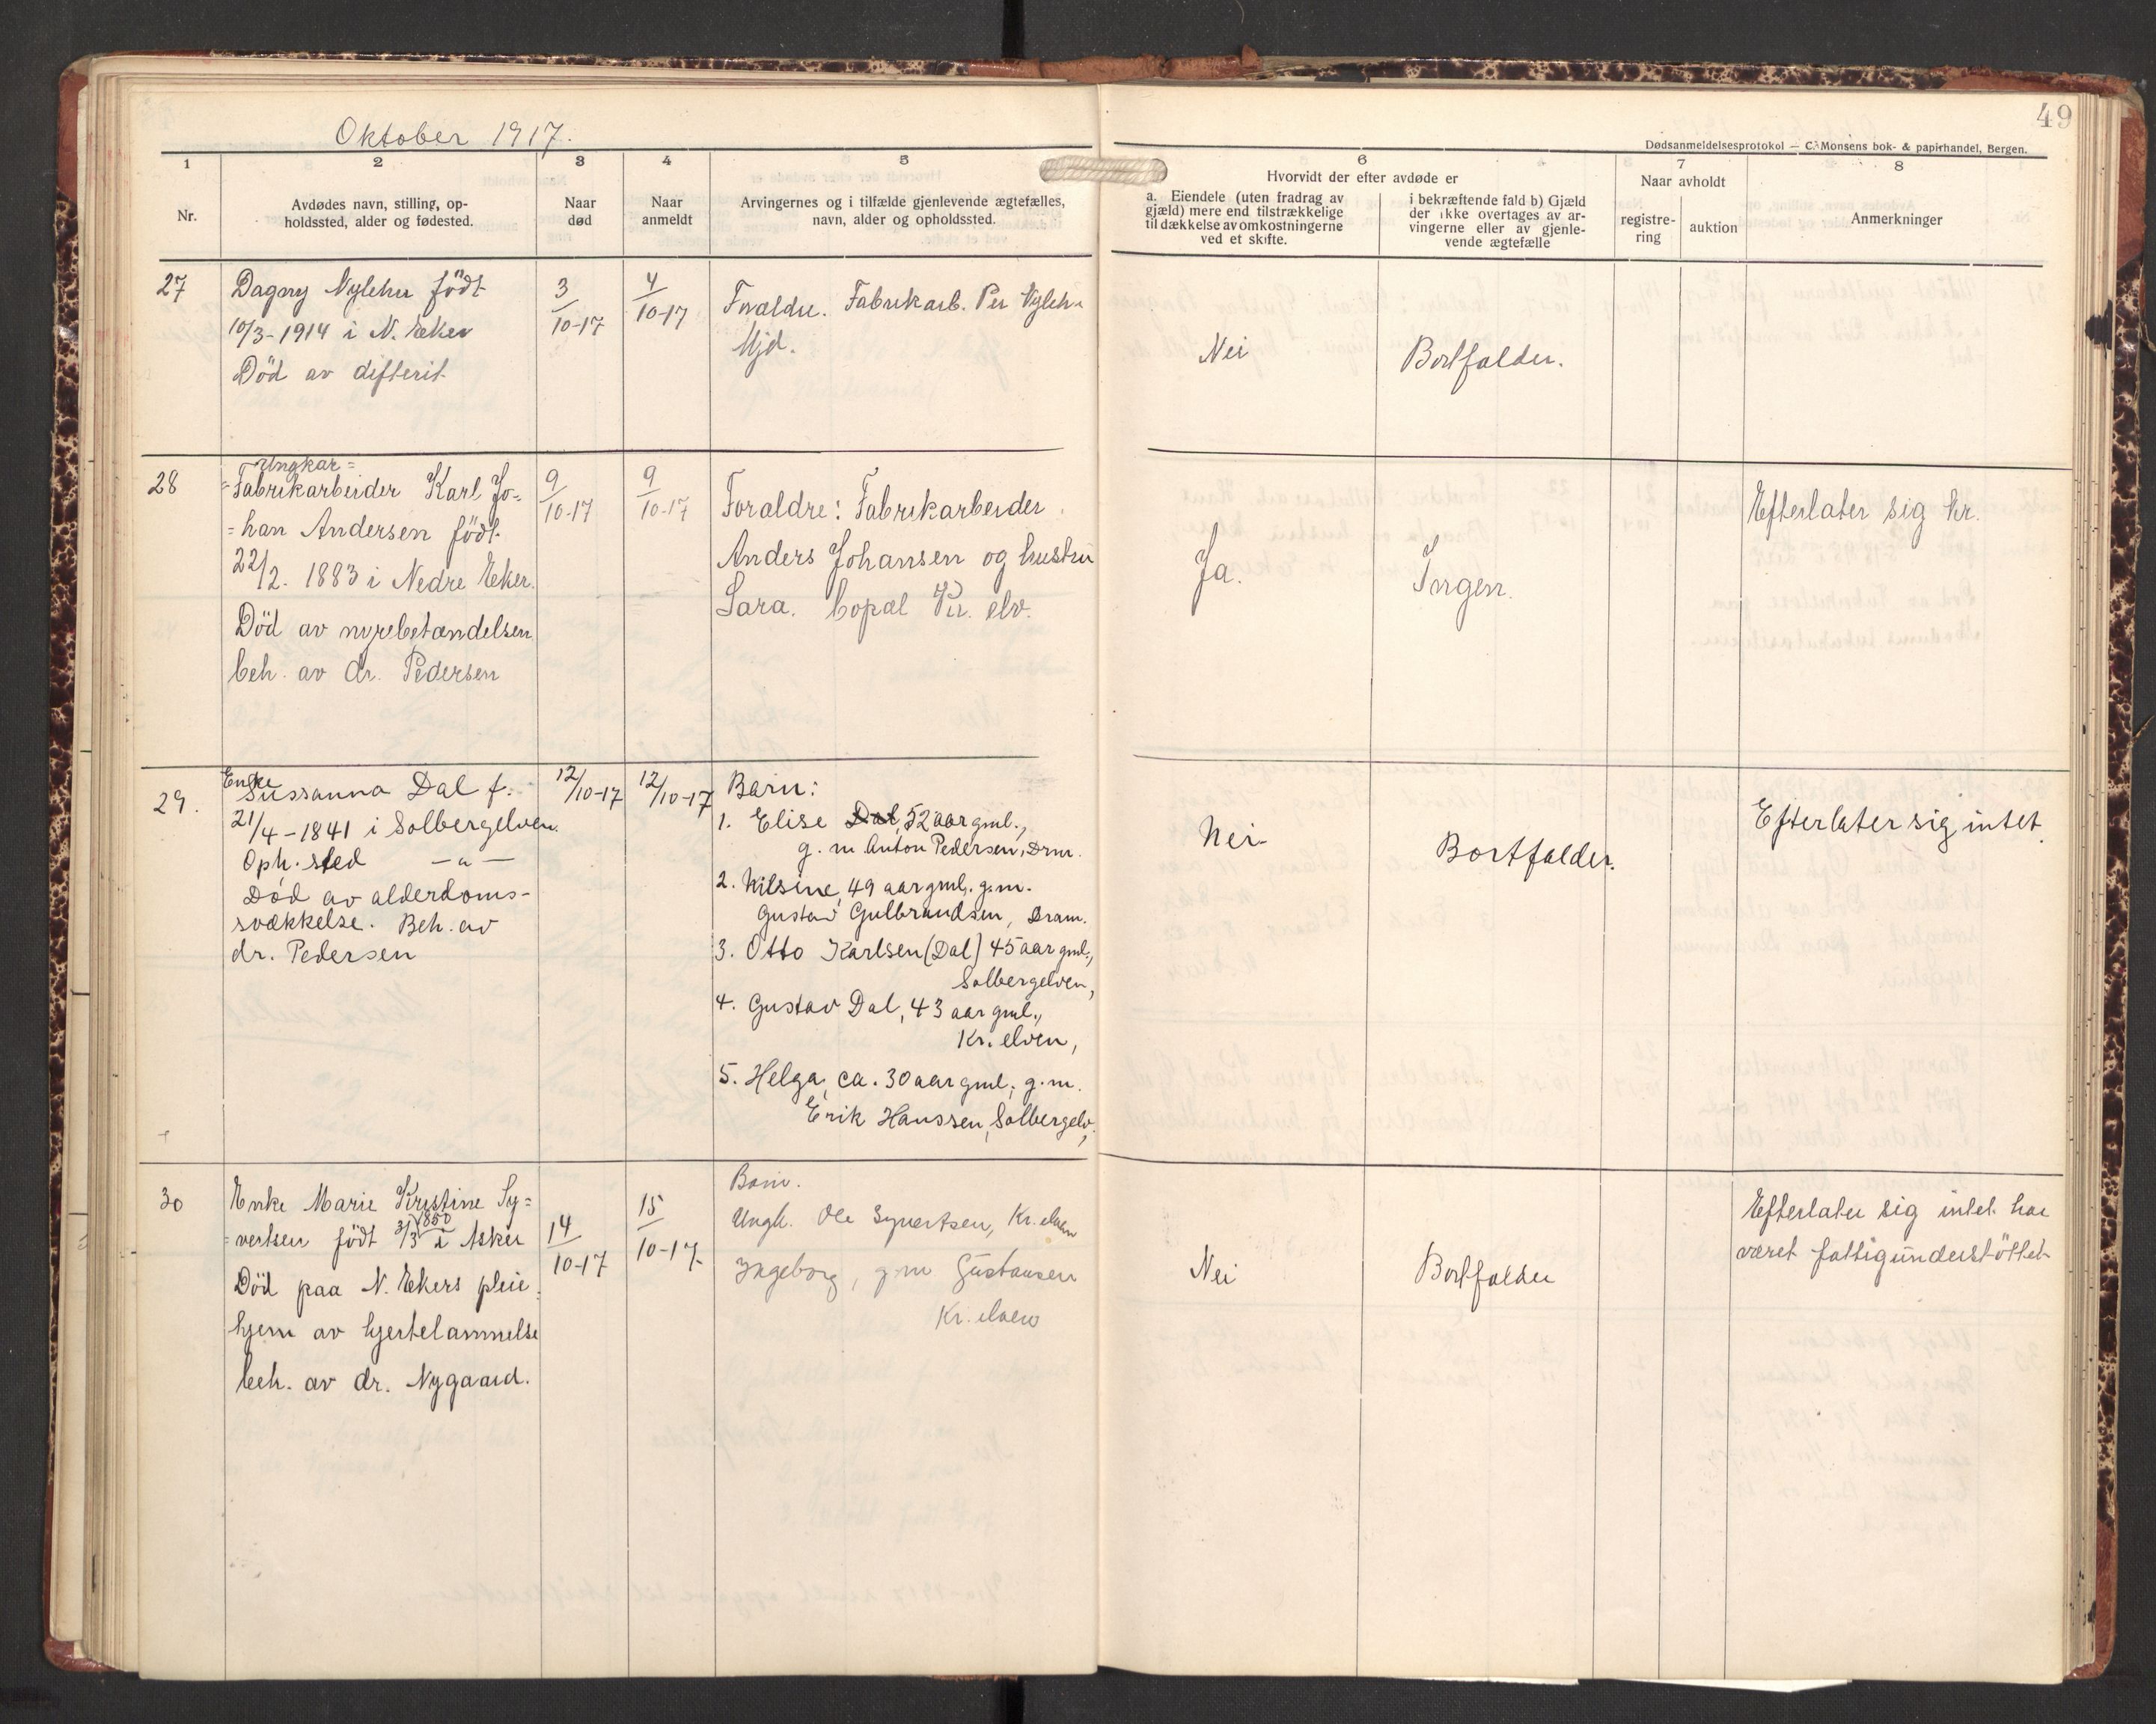 49
Oktober 1917.
Dødsanmeldelsesprotokol — C. Monsens bok- & papirhandel, Bergen.
1
2
3
4
5
6
7
8
Nr.
Avdødes navn, stilling, op-
holdssted, alder og fødested.
Naar
død
Naar
anmeldt
Arvingernes og i tilfælde gjenlevende ægtefælles,
navn, alder og opholdssted.
Hvorvidt der efter avdøde er
a. Eiendele (uten fradrag av
gjæld) mere end tilstrækkelige
til dækkelse av omkostningerne
ved et skifte.
i bekræftende fald b) Gjæld
der ikke overtages av ar-
vingerne eller av gjenle-
vende ægtefælle
Naar avholdt
registre-
ring
auktion
Anmerkninger
27
Dagny Nylehn født
10/3-1914 i N. Eker
Död av difterit
3/10-17
4/10-17
Foraldre. Fabrikarb. Per Nylehn
Mjd.
Nei
Bortfalder.
28
Ungkar =
= Fabrikarbeider Karl Jo-
= han Andersen født
22/2. 1883 i Nedre Eker.
Död av nyrebetændelsen
beh. av dr. Pedersen
9/10-17
9/10-17
Foraldre: Fabrikarbeider
Anders Johansen og hustru
Sara. bopæl Kr. elv.
Ja.
Ingen.
Efterlater sig kr.
29.
Enke
Sussanna Dal f.
21/4-1841 i Solbergelven.
Oph. sted — " —
Död av alderdoms-
svækkelse. Beh. av
dr. Pedersen
12/10-17
12/10-17
Barn:
1. Elise Dal, 52 aar gml.,
g. m Anton Pedersen, Drm.
2. Nilsine, 49 aar gml. g.m.
Gustav Gulbrandsen, Dram.
3. Otto Karlsen (Dal) 45 aar gml.,
Solbergelven,
4. Gustav Dal, 43 aar gml.,
Kr. elven,
5. Helga, ca. 30 aar gml., g.m.
Erik Hanssen, Solbergelv.
Nei
Bortfalder.
Efterlater sig intet
30
Enke Marie Kristine Sy=
= vertsen født 31/3 1850 i Asker
Död paa N. Ekers pleie
hjem av hjertelammelse
beh. av dr. Nygaard.
14/10-17
15/10-17
Barn.
Ungk. Ole Syvertsen, Kr. elven
Ingeborg, g m Gustavsen
Kr. elven
Nei
Bortfalder
Efterlater sig intet. har
været fattigunderstöttet